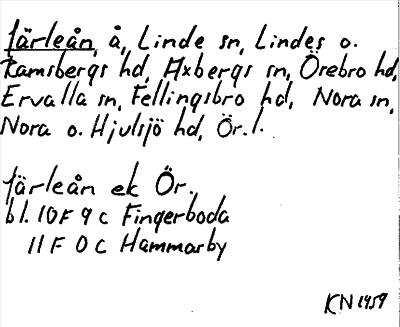 Järleån, å, Linde sn, Lindes o.
Ramsbergs hd, Axbergs sn, Örebro hd,
Ervalla sn, Fellingsbro hd, Nora sn,
Nora o. Hjulsjö hd, Ör. l.
Järleån ek Ör.
bl. 10F 9 c Fingerboda
11F 0 c Hammarby
KN 1959